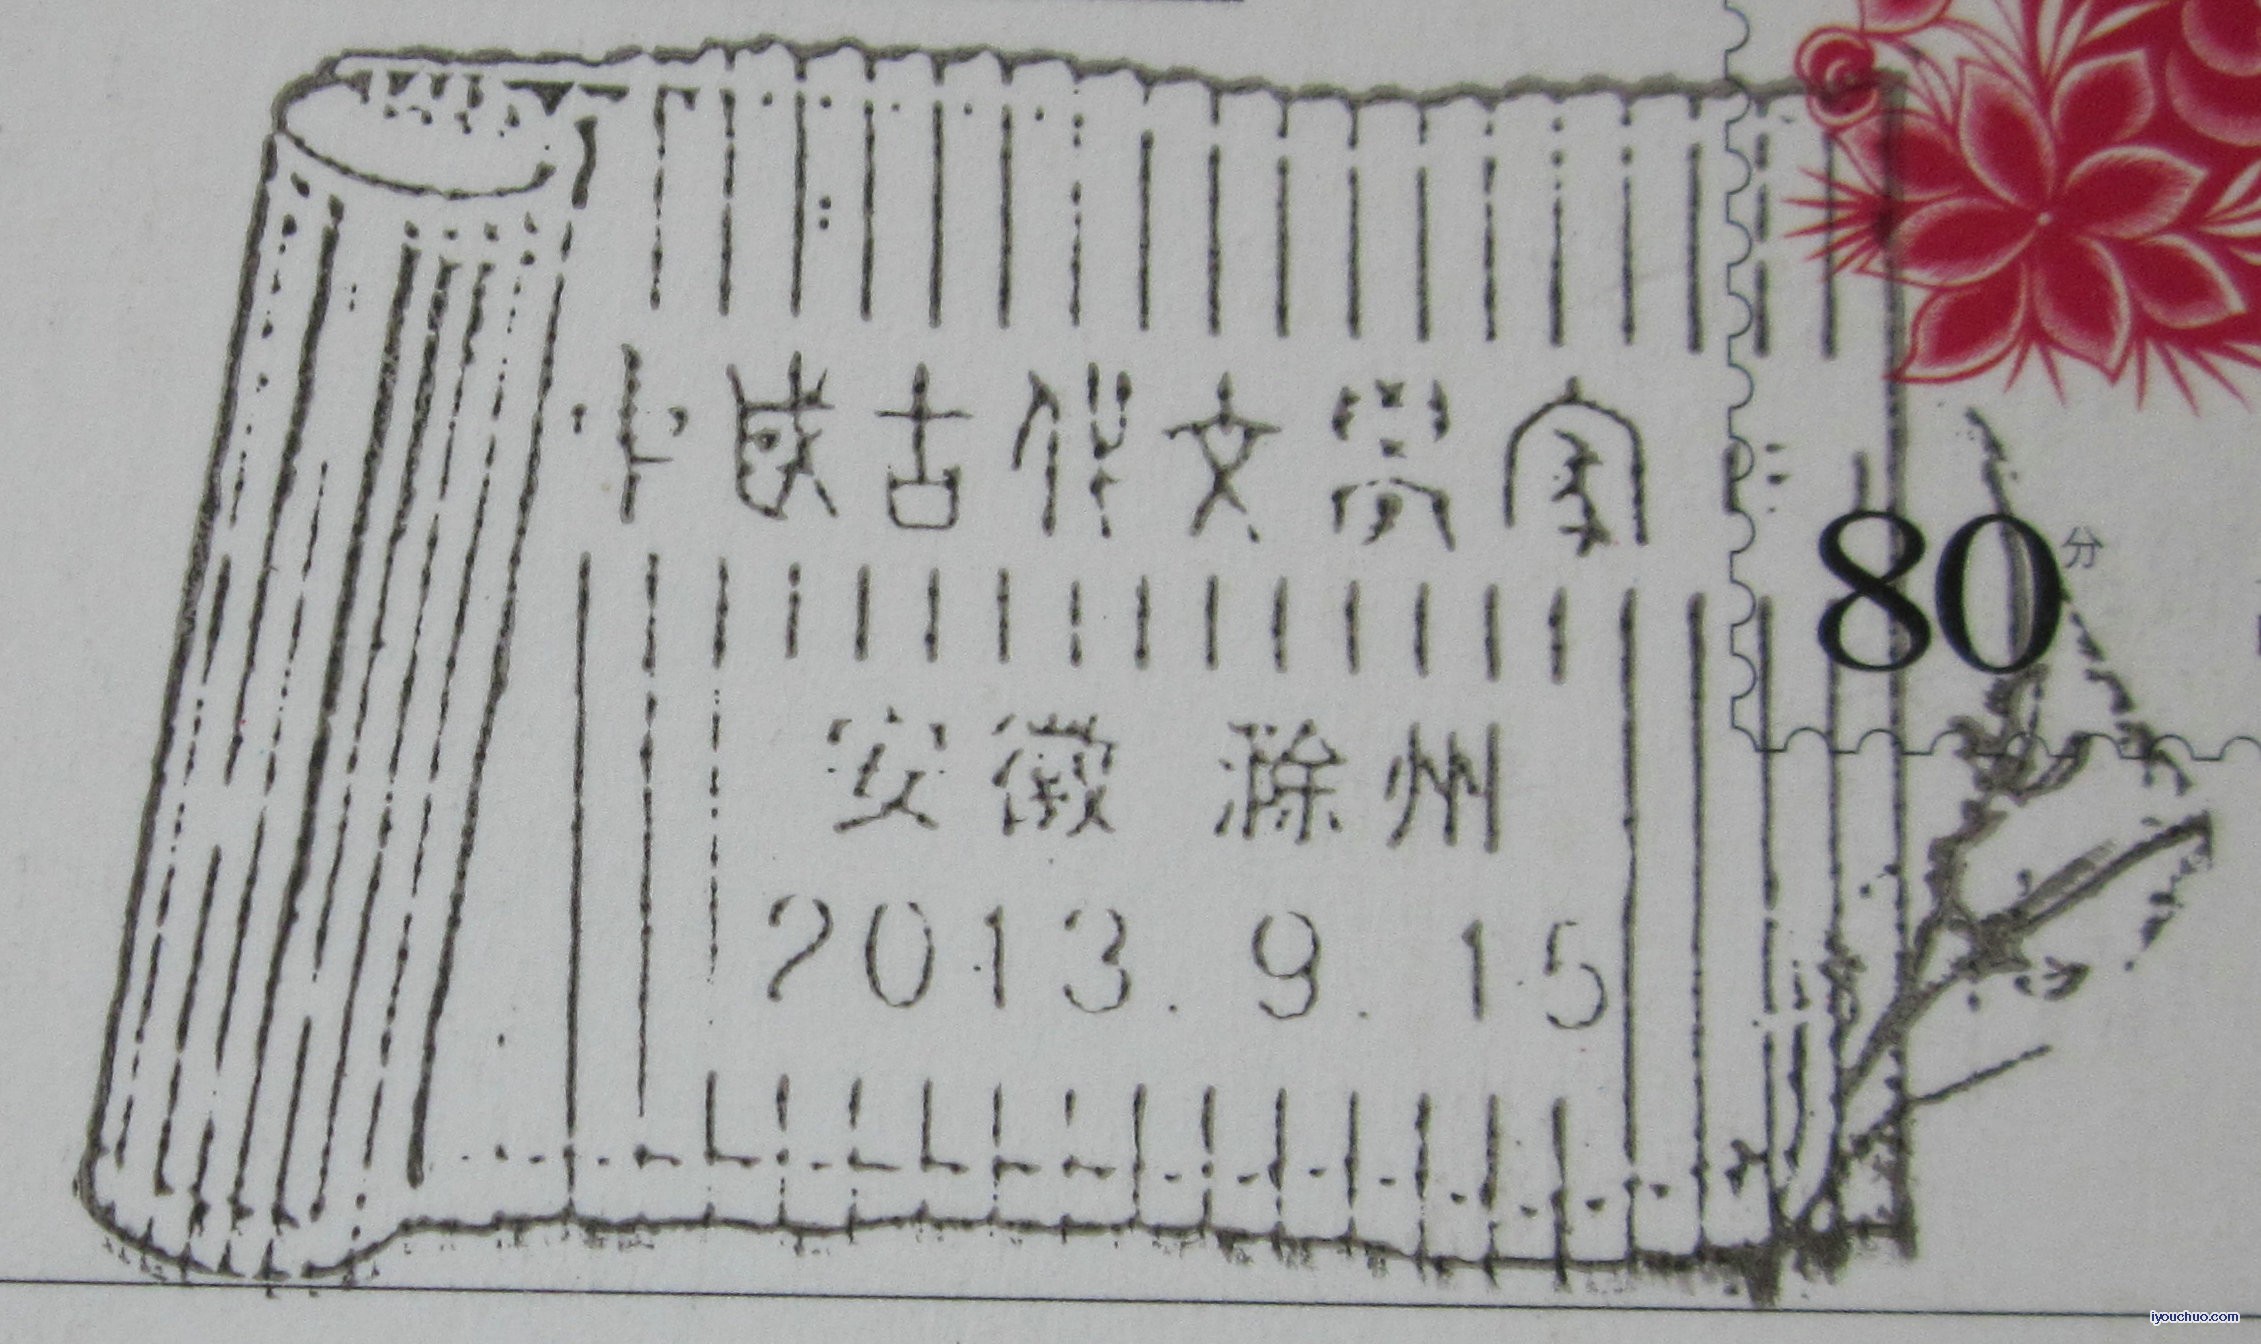 中國古代文學家
80分
安徽 滁州
2013.9.15
iyouchuo.com